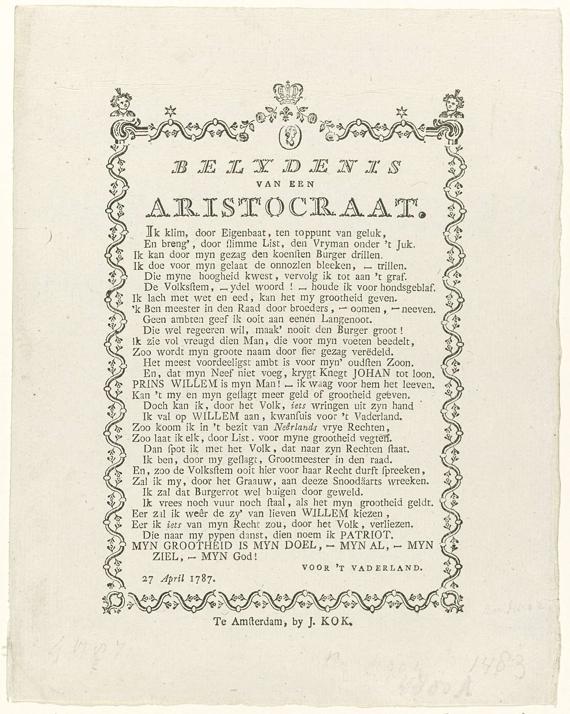 BELYDENIS
VAN EEN
ARISTOCRAAT.
Ik klim, door Eigenbaat, ten toppunt van geluk,
En breng', door slimme List, den Vryman onder 't Juk.
Ik kan door myn gezag den koensten Burger drillen.
Ik doe voor myn gelaat de onnozlen bleeken, — trillen.
Die myne hoogheid kwest, vervolg ik tot aan 't graf.
De Volksstem, — ydel woord! — houde ik voor hondsgeblaf.
Ik lach met wet en eed, kan het my grootheid geven.
'k Ben meester in den Raad door broeders, — oomen, — neeven.
Geen ambten geef ik ooit aan eenen Langenoot.
Die wel regeeren wil, maak' nooit den Burger groot!
Ik zie vol vreugd dien Man, die voor myn voeten beedelt,
Zoo wordt myn groote naam door fier gezag veredeld.
Het meest voordeeligst ambt is voor myn' oudsten Zoon.
En, dat myn Neef niet voeg, krygt Knegt JOHAN tot loon.
PRINS WILLEM is myn Man! — ik waag voor hem het leeven.
Kan 't my en myn geslagt meer geld of grootheid geeven.
Doch kan ik, door het Volk, iets wringen uit zyn hand
Ik val op WILLEM aan, kwansuis voor 't Vaderland.
Zoo koom ik in 't bezit van Neêrlands vrye Rechten,
Zoo laat ik elk, door List, voor myne grootheid vegten.
Dan spot ik met het Volk, dat naar zyn Rechten staat.
Ik ben, door my geslagt, Grootmeester in den raad.
En, zoo de Volksstem ooit hier voor haar Recht durft spreeken,
Zal ik my, door het Graauw, aan deeze Snoodäarts wreeken.
Ik zal dat Burgerrot wel buigen door geweld.
Ik vrees noch vuur noch staal, als het myn grootheid geldt.
Eer zal ik weêr de zy' van lieven WILLEM kiezen,
Eer ik iets van myn Recht zou, door het Volk, verliezen.
Die naar my pypen danst, dien noem ik PATRIOT.
MYN GROOTHEID IS MYN DOEL, — MYN AL, — MYN
ZIEL, — MYN God!
VOOR 'T VADERLAND.
27 April 1787.
Te Amsterdam, by J. KOK.